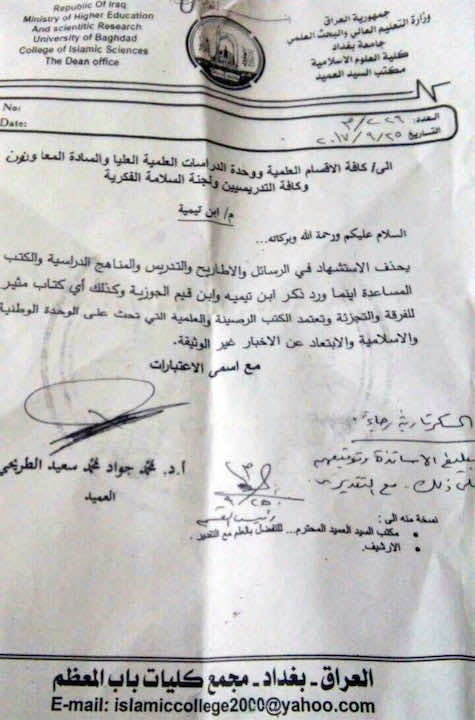 Republic Of Iraq
Ministry of Higher Education
And scientific Research
University of Baghdad
College of Islamic Sciences
The Dean office
جمهورية العراق
وزارة التعليم العالي والبحث العلمي
جامعة بغداد
كلية العلوم الاسلامية
مكتب السيد العميد
No:
Date:
العدد: ٣/٢٢٦
التاريخ ٢٠١٧/٩/٢٥
الى/ كافة الاقسام العلمية ووحدة الدراسات العلمية العليا والسادة المعاونون
وكافة التدريسيين ولجنة السلامة الفكرية
م/ ابن تيمية
السلام عليكم ورحمة الله وبركاته...
يحذف الاستشهاد في الرسائل والاطاريح والتدريس والمناهج الدراسية والكتب
المساعدة اينما ورد ذكر ابن تيميه وابن قيم الجوزية وكذلك أي كتاب مثير
للفرقة والتجزئة وتعتمد الكتب الرصينة والعلمية التي تحث على الوحدة الوطنية
والاسلامية والابتعاد عن الاخبار غير الوثيقة.
مع اسمى الاعتبارات
أ.د. محمد جواد محمد سعيد الطريحي
العميد
السكرتارية رجاءً
تبليغ الاساتذة وتوقيعهم
على ذلك. مع التقدير
٩/٢٥
رئيس القسم
نسخة منه الى :
• مكتب السيد العميد المحترم... للتفضل بالعلم مع التقدير .
• الارشيف.
العراق - بغداد - مجمع كليات باب المعظم
E-mail: islamiccollege2000@yahoo.com